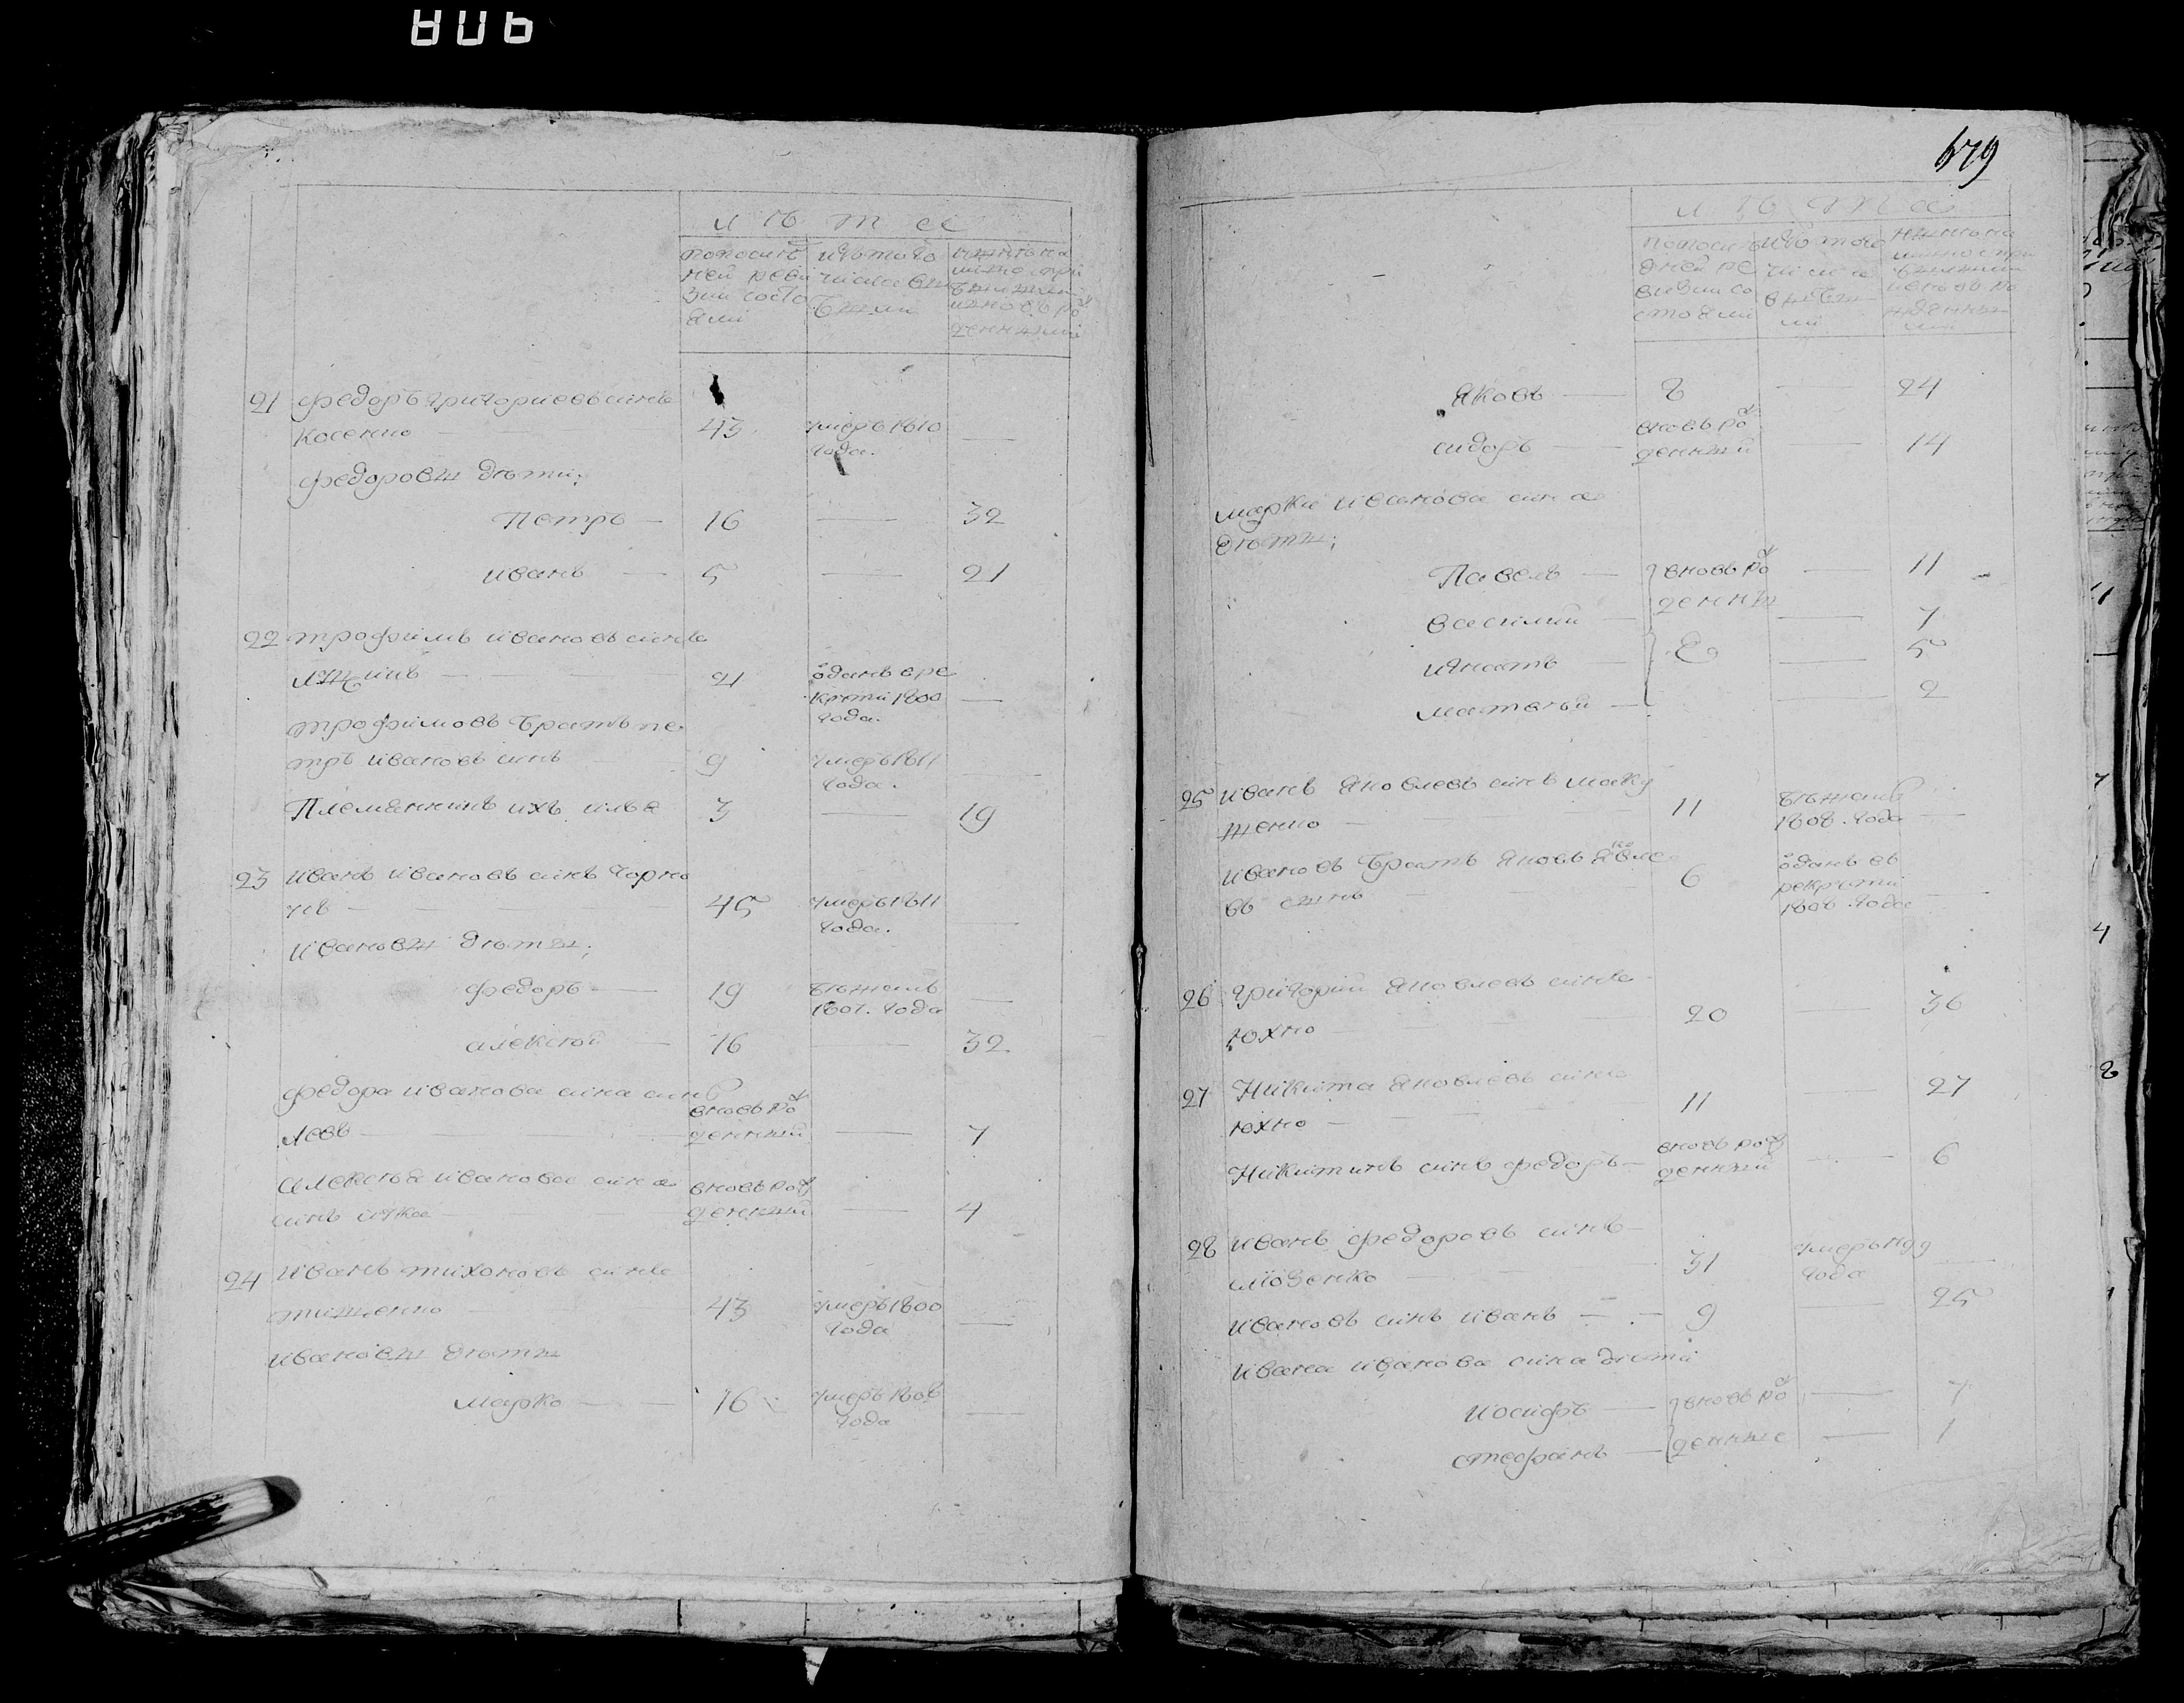 806
лѣта
попослѣд
ней реви
зіи состо
яли
изътого
числа вы
были
нынѣ на
лицо спри
былыми
иновъ рож
денными
21 федоръ григориевъ синъ
косенко — 43 умеръ 1810 —
года.
федоровы дѣти;
Петръ — 16 — 32
иванъ — 5 — 21
22 трофимъ ивановъ синъ
21 ѿданъ вре
крути 1800 —
года.
трофимовъ братъ пе
тръ ивановъ синъ 9 умеръ 1811 —
года.
Племянникъ ихъ илья 3 — 19
23 иванъ ивановъ синъ чорно
45 умеръ 1811 —
года.
ивановы дѣты;
федоръ — 19 бѣжалъ —
1801. года
алексѣй — 16 — 32
федора иванова сина синъ
левъ — вновь рож
денный — 7
алексѣя иванова сина вновь рож
синъ лука денный — 4
24 иванъ тихоновъ синъ
тищенко 43 умеръ 1800 —
года
ивановы дѣты
марко — 16 умеръ 1808 —
года
679
лѣта
попослѣ
дней ре
визіи со
стояли
изъ того
числа
выбы
ли
нынѣ на
лицо спри
былыми
иновъ ро
жденны
ми
яковъ — 8 — 24
сидоръ — вновь рож
денный — 14
марка иванова сина
дѣты;
Павелъ — вновь рож — 11
денны
василий — 7
игнатъ — е — 5
матвѣй — — 2
25 иванъ яковлевъ синъ маку
шенко — 11 бѣжалъ
1808. года —
ивановъ братъ яковъ яковле
въ сынъ — 6 ѿданъ въ
рекрути —
1808. года
26 григорий яковлевъ синъ
юхно — 20 — 36
27 Никита яковлевъ синъ
юхно — 11 — 27
Никитинъ синъ федоръ — вновь рож
денный — 6
28 иванъ федоровъ синъ
мозенко — 31 умеръ 1799
года —
ивановъ синъ иванъ — 9 — 25
ивана иванова сина дѣти
иосифъ — вновь рож — 7
стефанъ — денные — 1